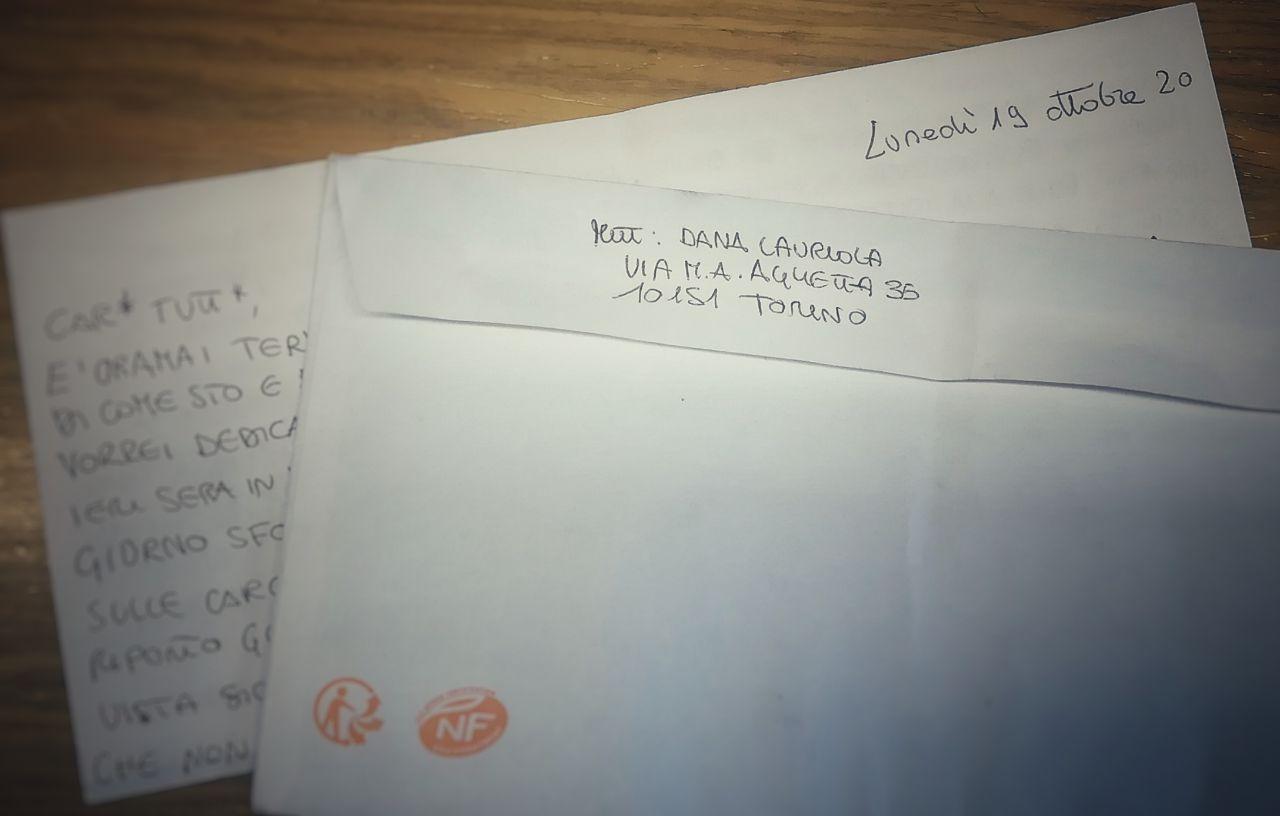 Lunedì 19 ottobre 20
Mitt: DANA LAURIOLA
VIA M.A. AGLIETTA 35
10151 TORINO
CAR* TUTT*,
E' ORAMAI TER
DI COME STO E
VORREI DEDICA
IERI SERA IN
GIORNO SFO
SULLE CARC
REPORTO
VISTA
CHE NON
NF